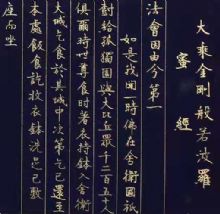 大乘金剛般若波羅
蜜經
法會因由分第一
如是我聞一時佛在舍衛國祇
樹給孤獨園與大比丘眾千二百五十人
俱爾時世尊食時著衣持鉢入舍衛
大城乞食於其城中次第乞已還至
本處飯食訖收衣鉢洗足已敷
座而坐